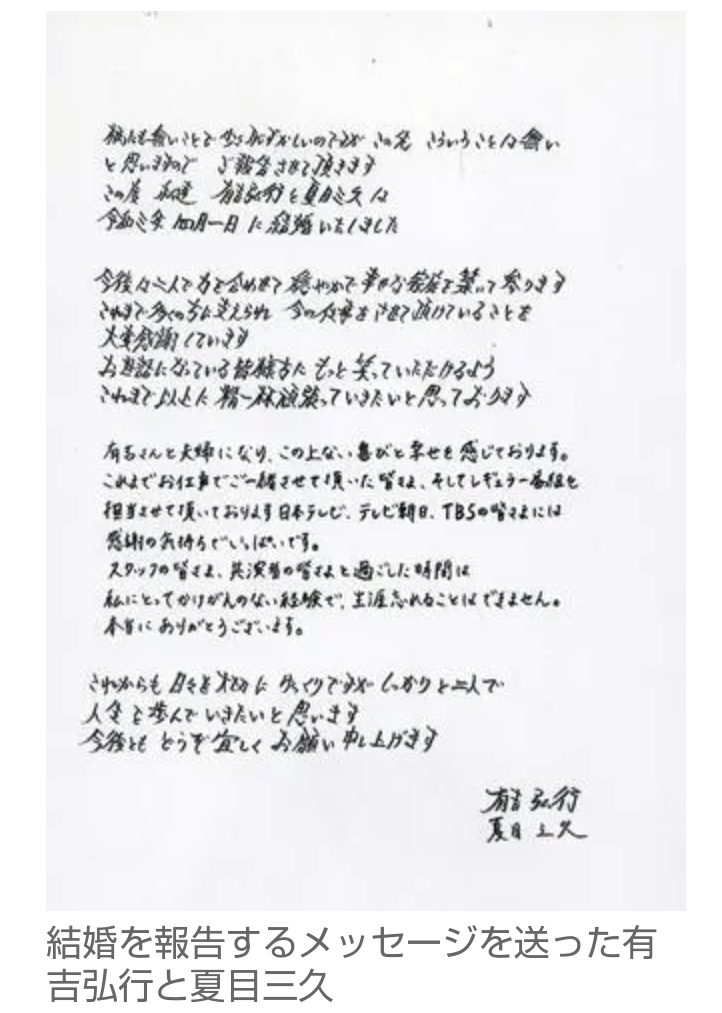 個人的なことで少し恥ずかしいのですが この先 こういうことは無い
と思いますので ご報告させて頂きます
この度 私達 有吉弘行と夏目三久は
令和三年 四月一日 に 結婚いたしました
今後は二人で力を合わせて 穏やかで幸せな家庭を築いて参ります
これまで多くの方に支えられ 今の仕事をさせて頂けていることを
大変感謝しています
お世話になっている皆様方に もっと笑っていただけるよう
これまで以上に精一杯頑張っていきたいと思っております
有吉さんと夫婦になり、この上ない喜びと幸せを感じております。
これまでお仕事でご一緒させて頂いた皆さま、そしてレギュラー番組を
担当させて頂いております日本テレビ、テレビ朝日、TBSの皆さまには
感謝の気持ちでいっぱいです。
スタッフの皆さま、共演者の皆さまと過ごした時間は
私にとってかけがえのない経験で、生涯忘れることはできません。
本当にありがとうございます。
これからも 日々を大切に ゆっくりですが しっかりと二人で
人生を歩んでいきたいと思います
今後とも どうぞ宜しく お願い申し上げます
有吉弘行
夏目三久
結婚を報告するメッセージを送った有
吉弘行と夏目三久